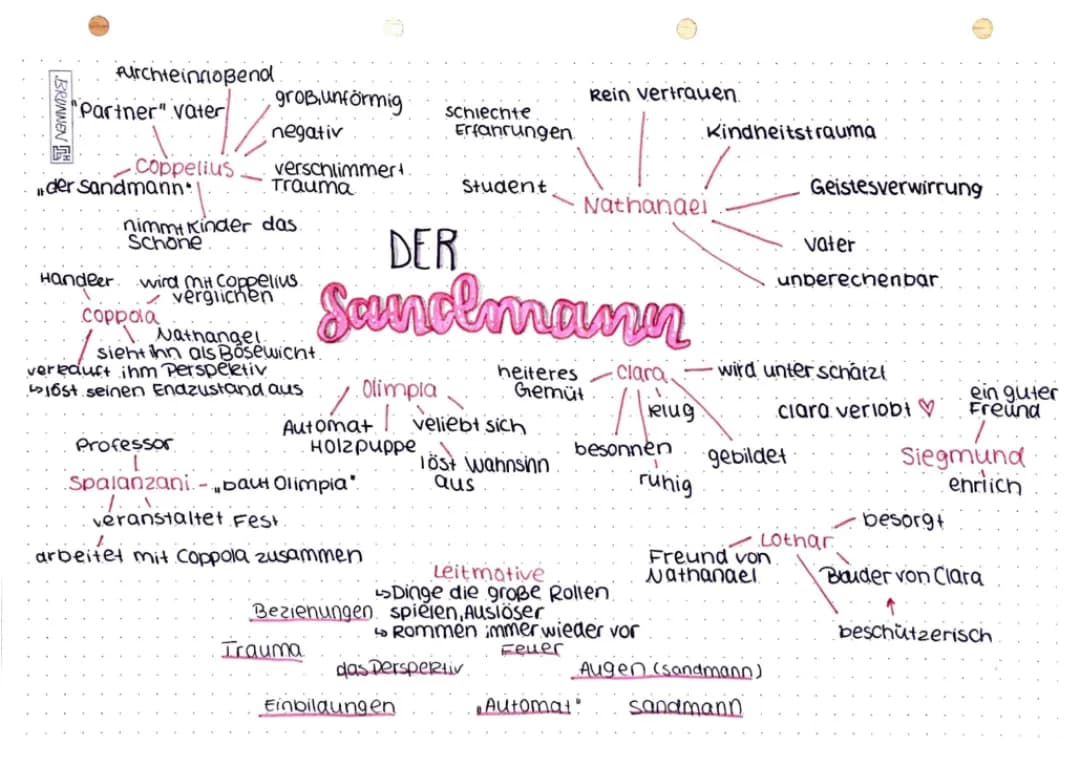 BRUNNEN
furchteinflößend
"Partner" vater
groß, unförmig
negativ
Coppelius
verschlimmert
Trauma
„der Sandmann"
nimmt Kinder das
Schöne
schlechte
Erfahrungen
Kein vertrauen
Kindheitstrauma
Student
Nathanael
Geistesverwirrung
vater
unberechenbar
DER
Sandmann
Händler
wird mit Coppelius
verglichen
Coppola
Nathanael
sieht ihn als Bösewicht
verkauft ihm Perspektiv
↳löst seinen Endzustand aus
Olimpia
Automat
Holzpuppe
veliebt sich
löst Wahnsinn
aus
heiteres
Gemüt
Clara
wird unterschätzt
klug
besonnen
ruhig
gebildet
clara verlobt ♡
ein guter
Freund
Siegmund
ehrlich
Professor
Spalanzani - „baut Olimpia"
veranstaltet Fest
arbeitet mit Coppola zusammen
besorgt
Lothar
Freund von
Nathanael
Bruder von Clara
beschützerisch
Leitmotive
↳Dinge die große Rollen
spielen, Auslöser
↳ kommen immer wieder vor
Beziehungen
Trauma
Feuer
das Perspektiv
Augen (sandmann)
Einbildungen
„Automat"
sandmann